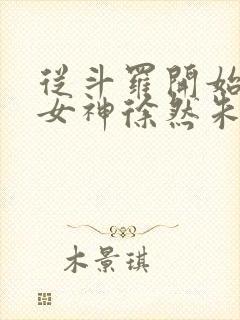 從斗羅開始
女神徐然朱
木景琪